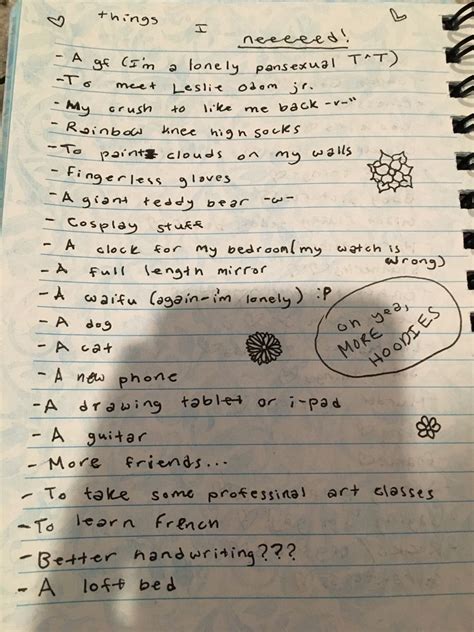 things I
neeeeed!
- A gf (I'm a lonely pansexual T^T)
-To meet Leslie Odom jr.
- My crush to like me back -v-"
- Rainbow knee high socks
-To paint clouds on my walls
- Fingerless gloves
- A giant teddy bear -w-
- Cosplay stuff
- A clock for my bedroom (my watch is
wrong)
- A full length mirror
- A waifu (again-i'm lonely) :P
- A dog
oh yea,
MORE
HOODIES
- A cat
- A new phone
- A drawing tablet or i-pad
- A guitar
- More friends...
- To take some professinal art classes
-To learn French
-Better handwriting???
- A loft bed